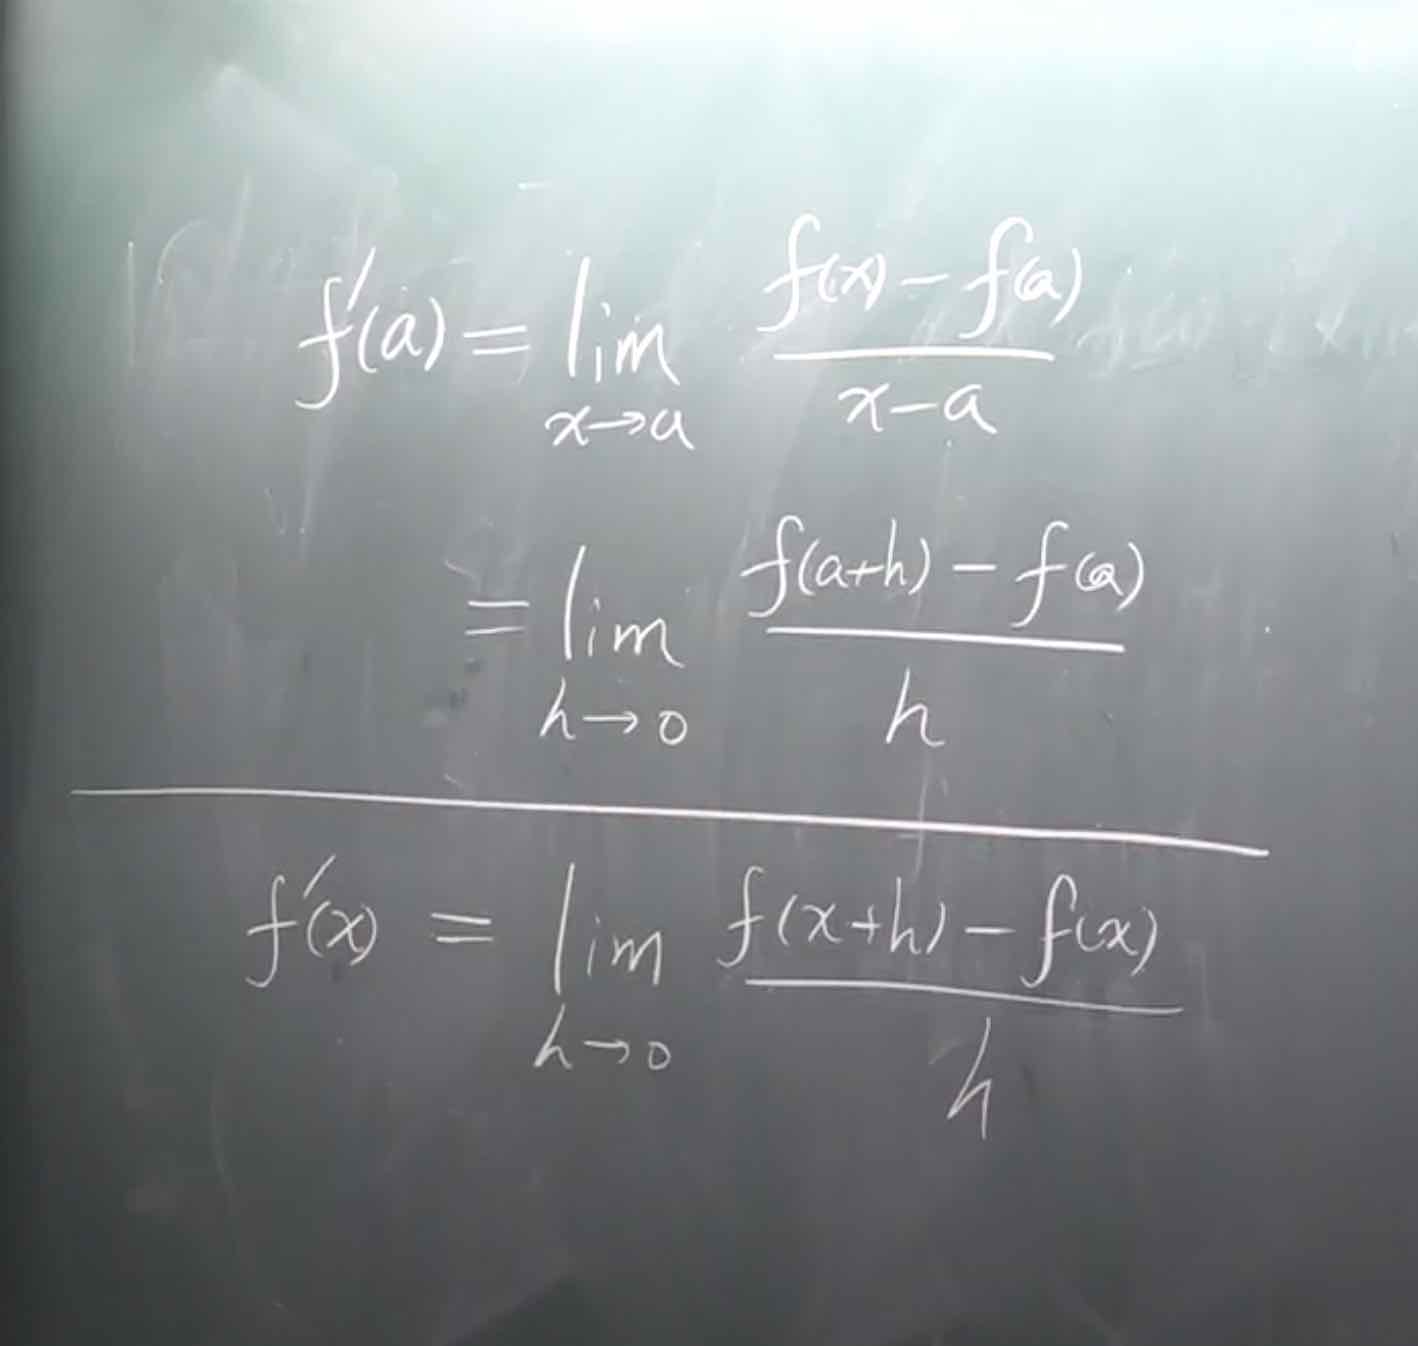 f'(a) = lim_{x→a} \frac{f(x) - f(a)}{x - a}
= lim_{h→0} \frac{f(a+h) - f(a)}{h}
f'(x) = lim_{h→0} \frac{f(x+h) - f(x)}{h}